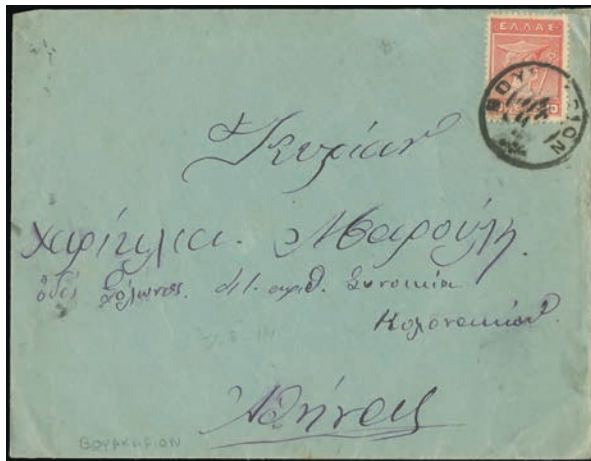 ΕΛΛΑΣ
ΒΟΥ ΙΟΝ
Κυρίαν
Χαρίκλεια Μαρούλη
ὁδός Σόλωνος 41. αριθ. Συνοικία
Κολονακίου
27-8-14
Ἀθήνας
ΒΟΥΡΚΑΡΙΟΝ